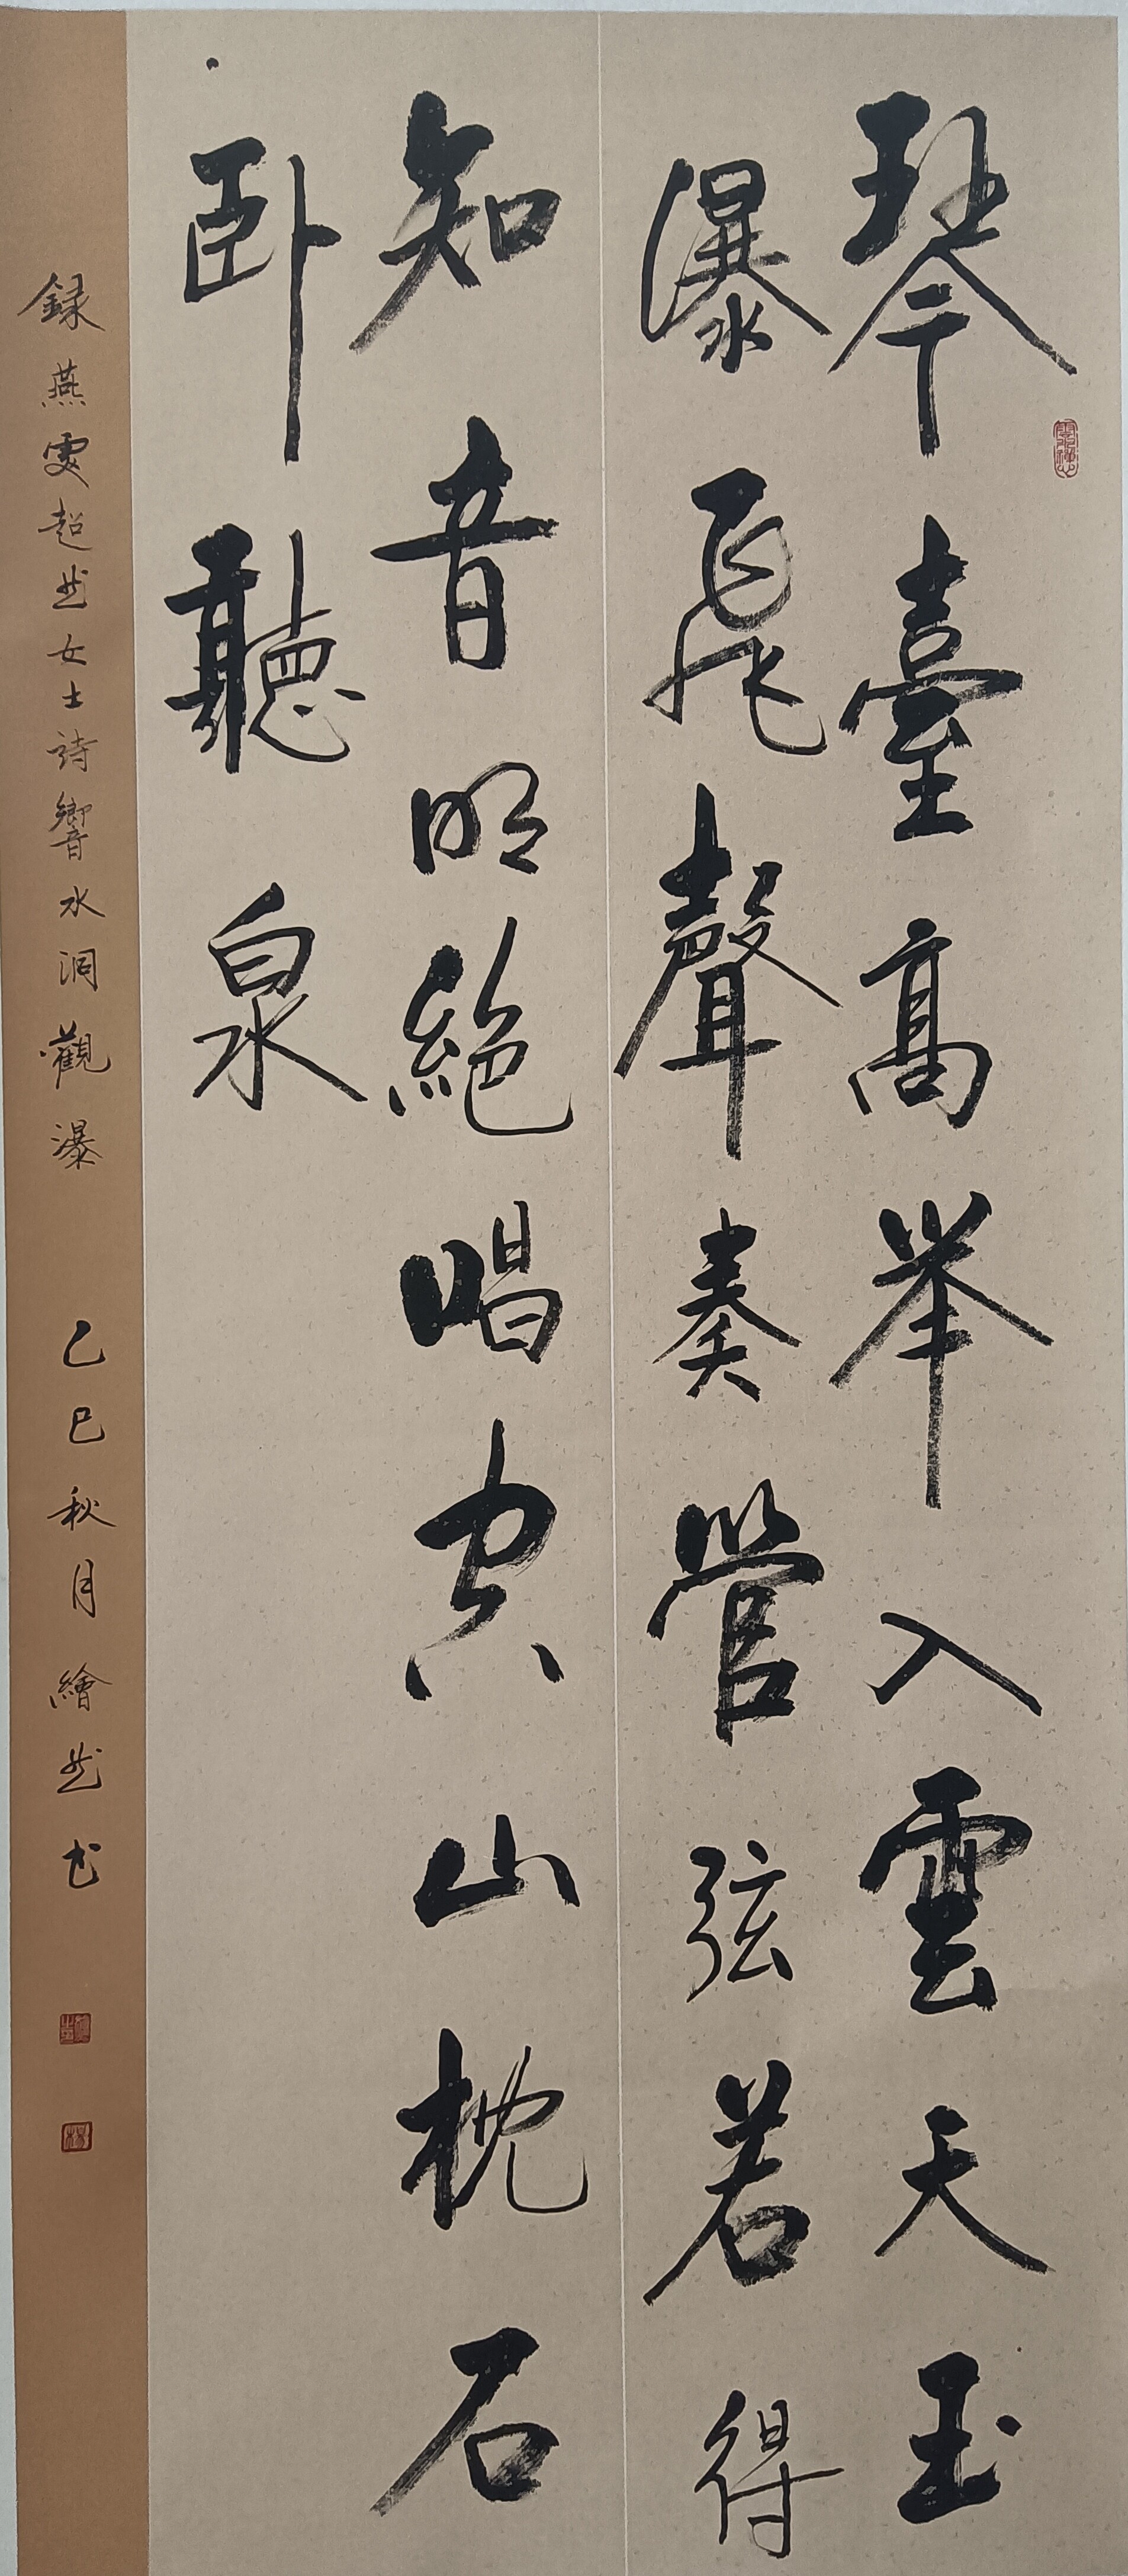 琴臺高举入雲天玉
瀑飛聲奏管弦若得
知音明絕唱空山枕石
卧聽泉
録燕雯超然女士詩響水洞觀瀑 乙巳秋月繪然书